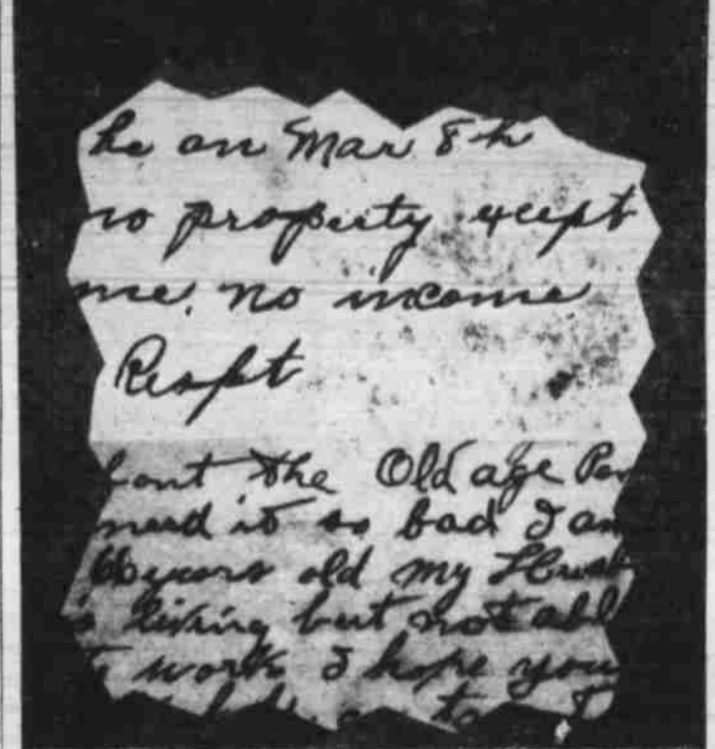 he on Mar 8th
no property except
me, no income
Respt
bout the Old age Pen
need it so bad I am
66 years old my Husb
is living but not abl
to work I hope you